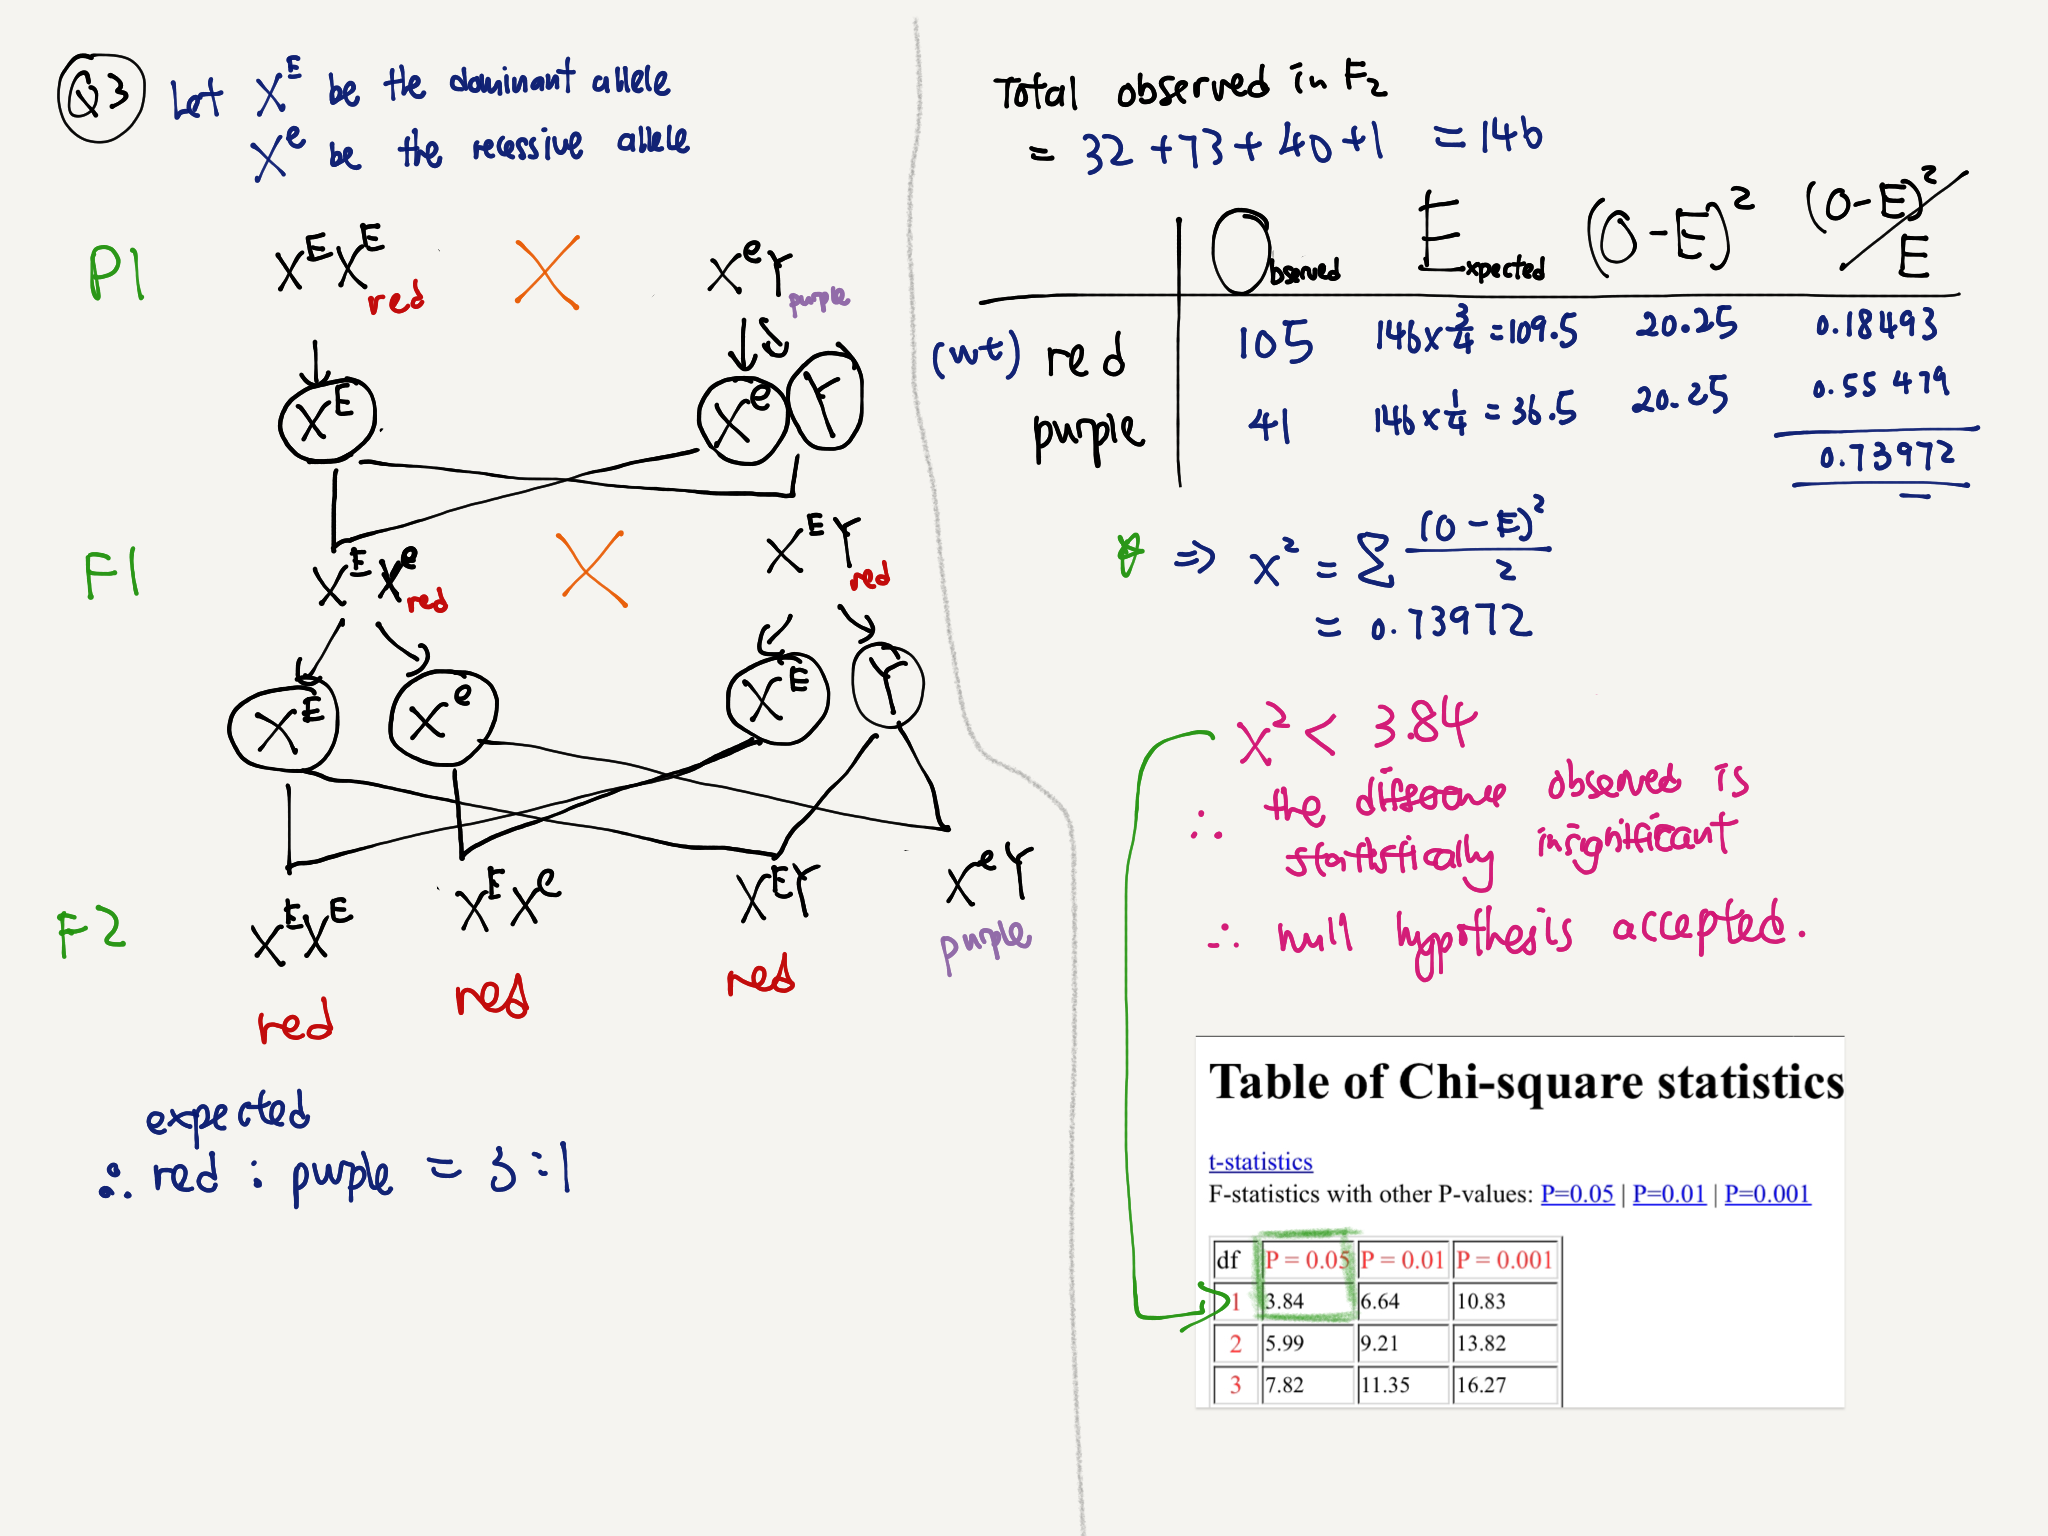 Q3 Let X^E be the dominant allele
X^e be the recessive allele
P1 X^E X^E red X X^e Y purple
X^E X^e Y
F1 X^E X^e red X X^E Y red
X^E X^e X^E Y
F2 X^E X^E X^E X^e X^E Y X^e Y
red red red purple
expected
∴ red : purple = 3 : 1
Total observed in F2
= 32 + 73 + 40 + 1 = 146
Observed Expected (O-E)^2 (O-E)^2/E
(wt) red 105 146 x 3/4 = 109.5 20.25 0.18493
purple 41 146 x 1/4 = 36.5 20.25 0.55479
0.73972
⇒ x^2 = Σ (O-E)^2/2
= 0.73972
x^2 < 3.84
∴ the difference observed is
statistically insignificant
∴ null hypothesis accepted.
Table of Chi-square statistics
t-statistics
F-statistics with other P-values: P=0.05 | P=0.01 | P=0.001
df P = 0.05 P = 0.01 P = 0.001
1 3.84 6.64 10.83
2 5.99 9.21 13.82
3 7.82 11.35 16.27